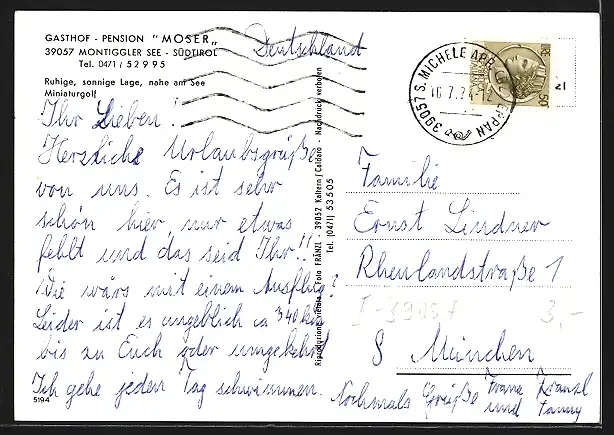 GASTHOF - PENSION "MOSER"
39057 MONTIGGLER SEE - SÜDTIROL
Tel. 0471 / 52995
Ruhige, sonnige Lage, nahe am See
Miniaturgolf
Deutschland
39057 S. MICHELE APP.
16.7.74
EPPAN
50
Ihr Lieben!
Herzliche Urlaubsgrüße
von uns. Es ist sehr
schön hier, nur etwas
fehlt und das seid Ihr!!
Wie wärs mit einem Ausflug?
Leider ist es angeblich ca 340 km
bis zu Euch oder umgekehrt
Ich gehe jeden Tag schwimmen.
Nochmals Grüße Franz
und Fanny
5194
Foto FRÄNZL - 39052 Kaltern / Caldaro - Nachdruck verboten
Tel. (0471) 53505
Familie
Ernst Lindner
Rheinlandstraße 1
I-39057
3,-
8 München